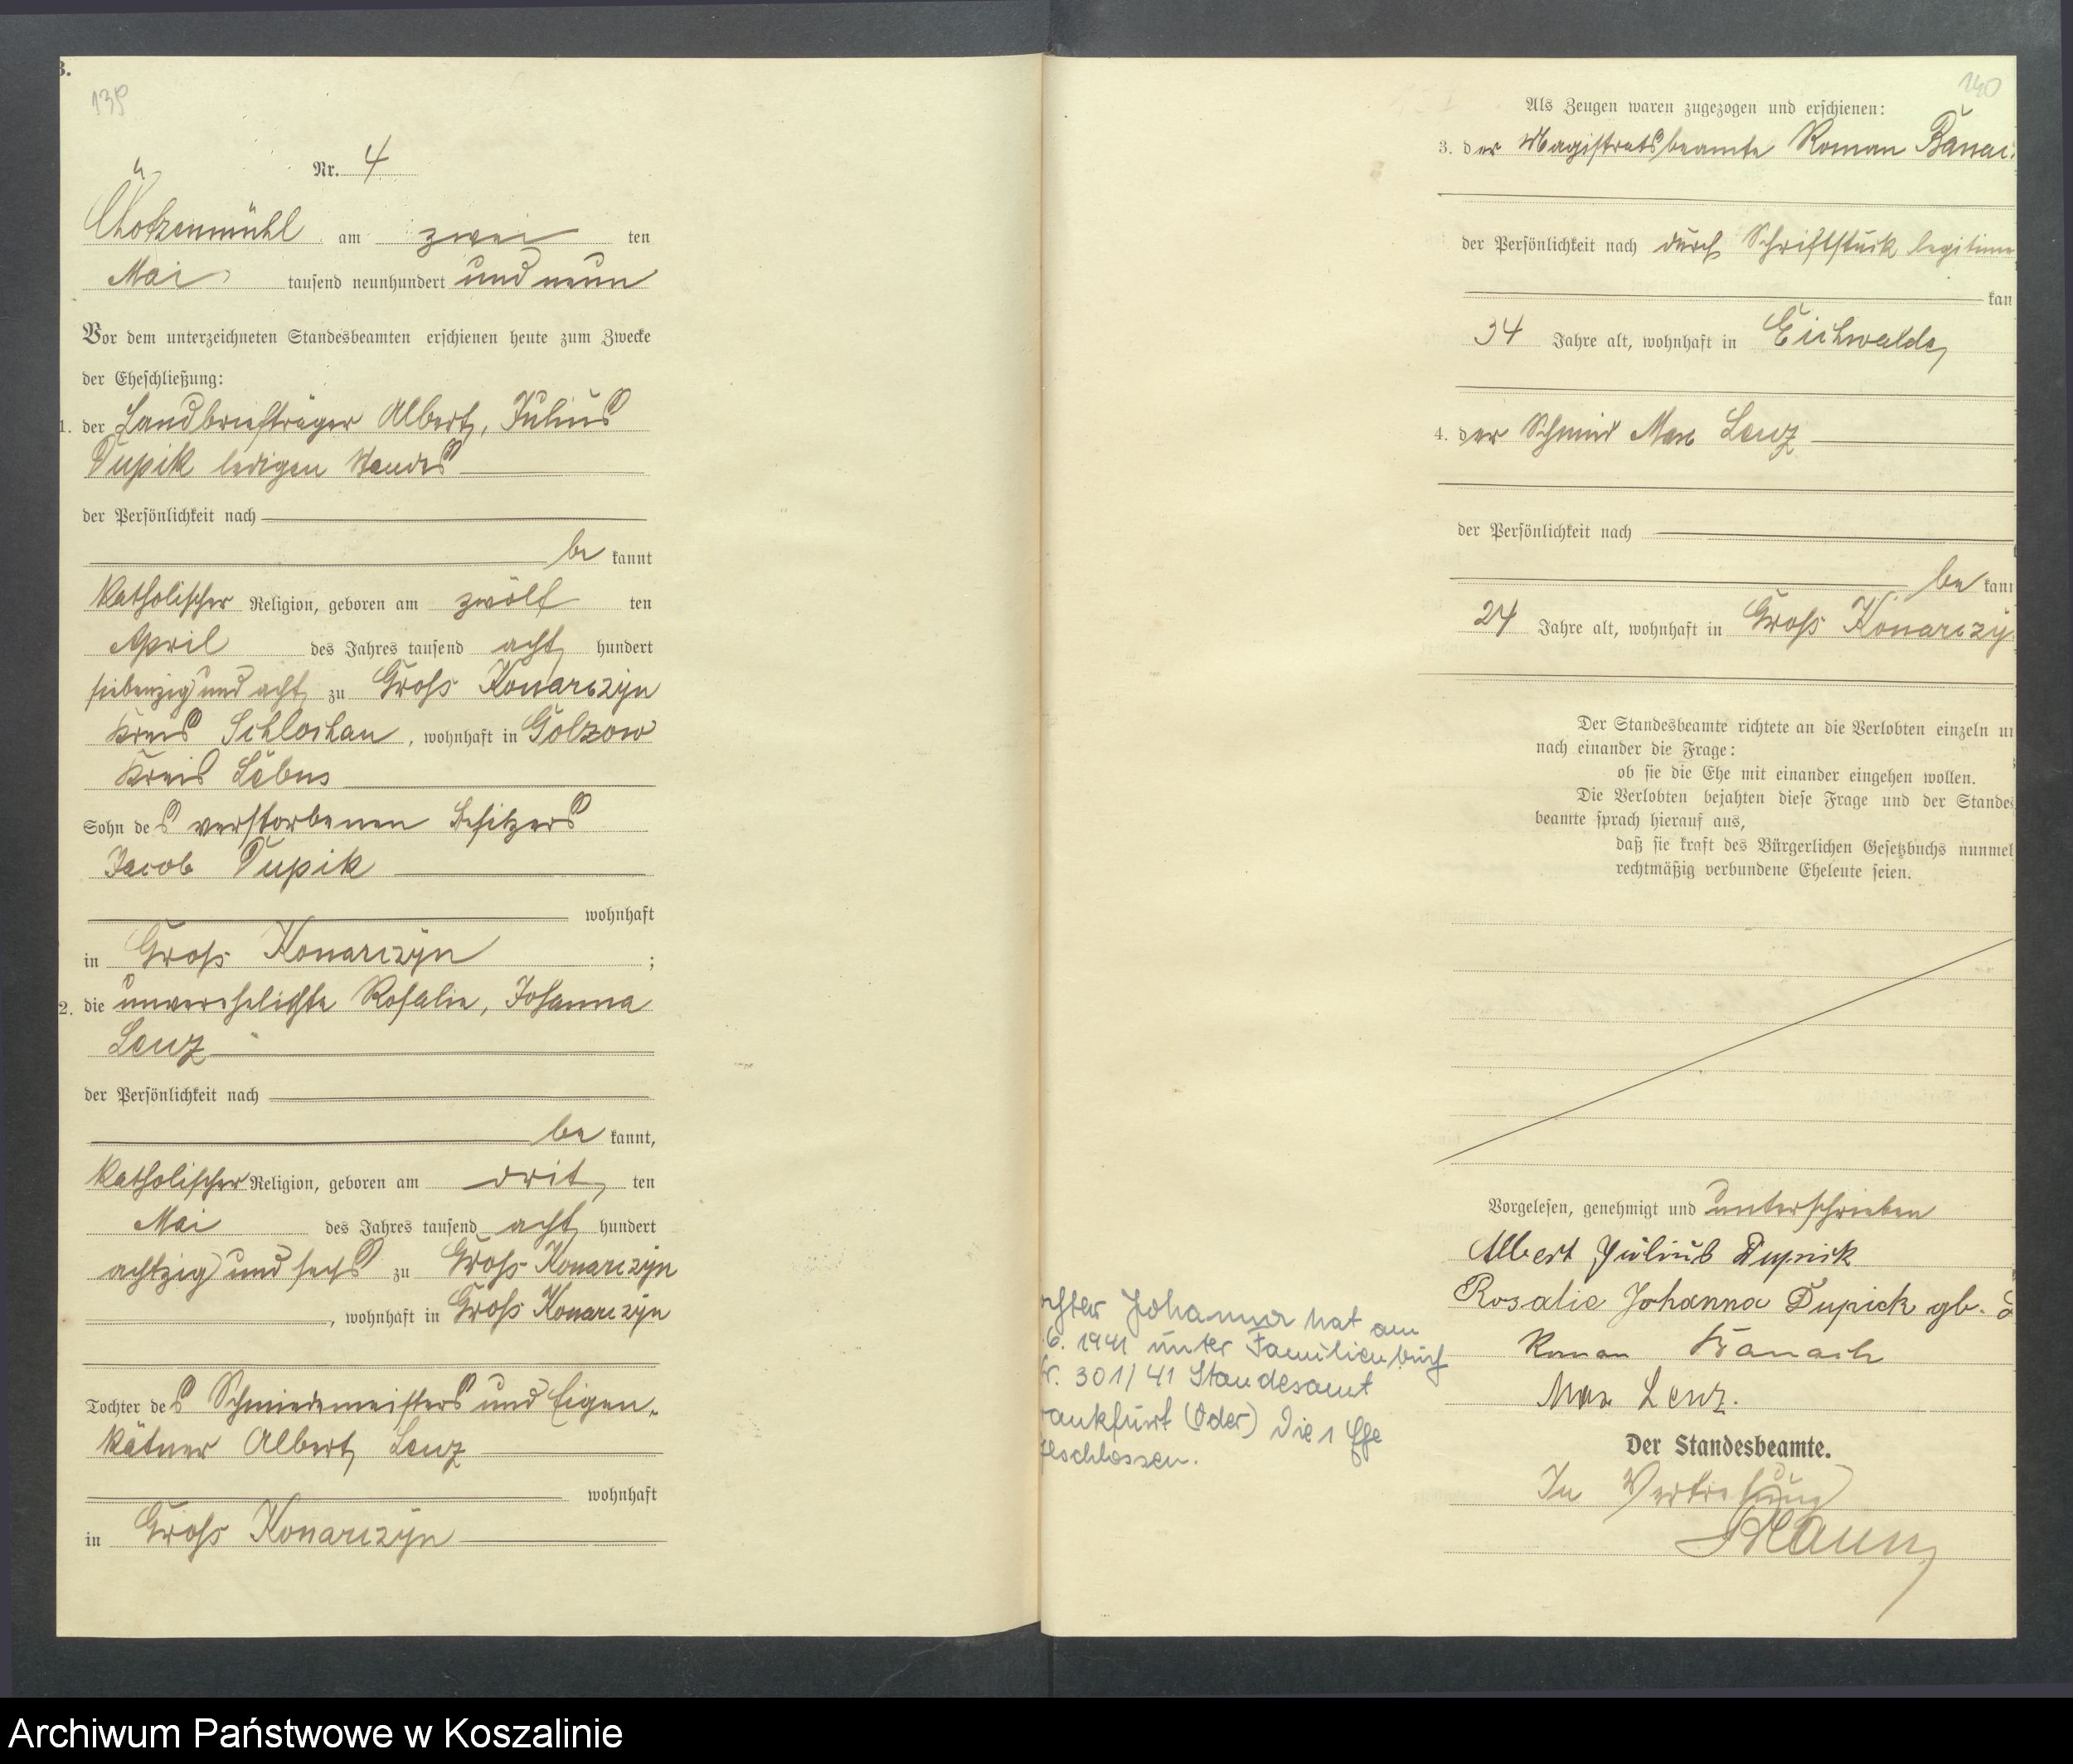 B.
139
Nr. 4
Chotzenmühl am zwei ten
Mai tausend neunhundert und neun
Vor dem unterzeichneten Standesbeamten erschienen heute zum Zwecke
der Eheschließung:
1. der Landbriefträger Albert, Julius
Dupik ledigen Standes
der Persönlichkeit nach
be kannt
katholischer Religion, geboren am zwölf ten
April des Jahres tausend acht hundert
siebenzig und acht zu Gross Konarczyn
Kreis Schlochau, wohnhaft in Golzow
Kreis Lebus
Sohn des verstorbenen Besitzers
Jacob Dupik
wohnhaft
in Gross Konarczyn ;
2. die unverehelichte Rosalie, Johanna
Lenz
der Persönlichkeit nach
be kannt,
katholischer Religion, geboren am drit ten
Mai des Jahres tausend acht hundert
achtzig und sechs zu Gross Konarczyn
, wohnhaft in Gross Konarczyn
Tochter des Schmiedemeisters und Eigen-
kätner Albert Lenz
wohnhaft
in Gross Konarczyn
140
Als Zeugen waren zugezogen und erschienen:
3. der Magistratsbeamte Roman
der Persönlichkeit nach durch Schriftstück legitim
kan
34 Jahre alt, wohnhaft in Eichwalde
4. der Schmied Max Lenz
der Persönlichkeit nach
be kann
24 Jahre alt, wohnhaft in Gross Konarczy
Der Standesbeamte richtete an die Verlobten einzeln un
nach einander die Frage:
ob sie die Ehe mit einander eingehen wollen.
Die Verlobten bejahten diese Frage und der Standes
beamte sprach hierauf aus,
daß sie kraft des Bürgerlichen Gesetzbuchs nunmeh
rechtmäßig verbundene Eheleute seien.
Vorgelesen, genehmigt und unterschrieben
Albert Julius Dupik
Rosalie Johanna Dupick gb.
Roman
Max Lenz.
Der Standesbeamte.
In Vertretung
ochter Johanna hat am
6. 1941 unter Familienbuch
Nr. 301/41 Standesamt
rankfurt (Oder) die 1 Ehe
geschlossen.
Archiwum Państwowe w Koszalinie